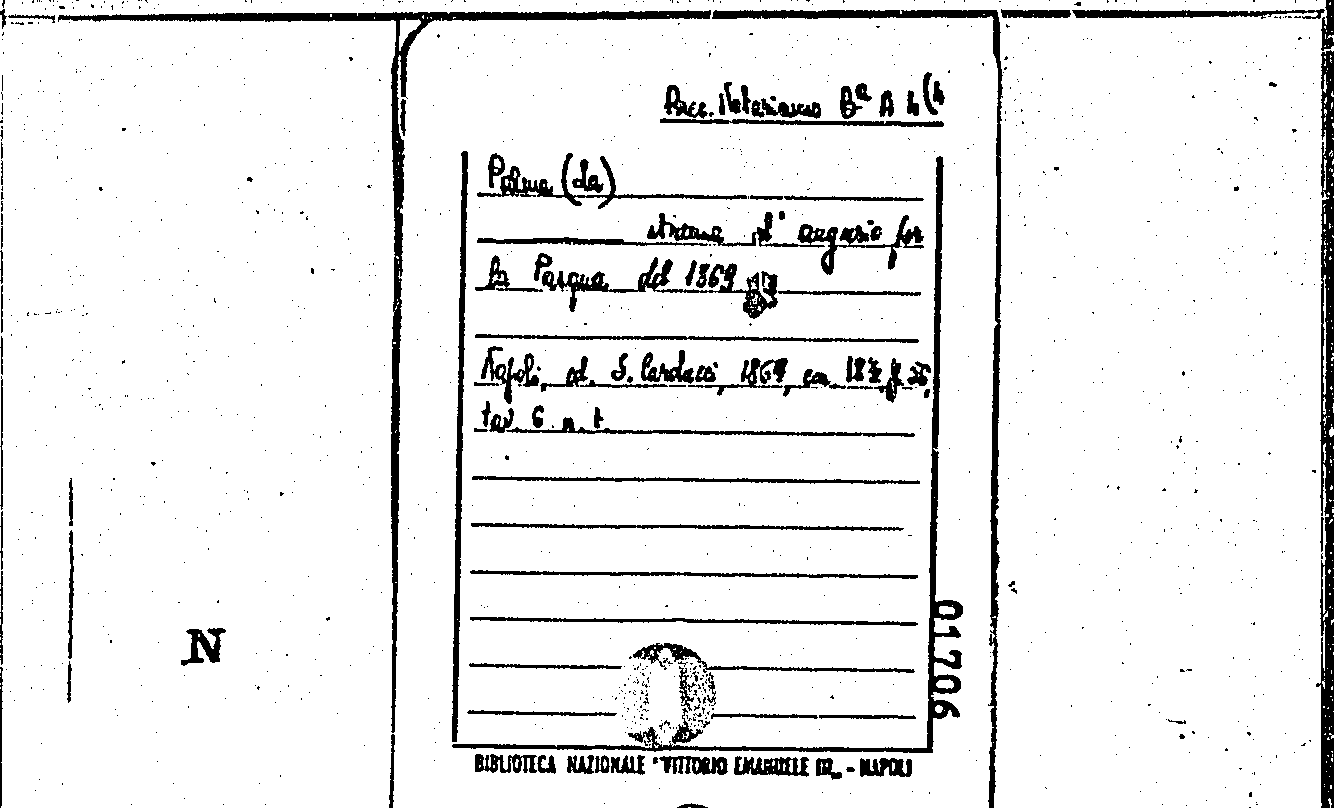 Race. Notarianni Bª A 4 (4
Palma (da)
strenna d' augurio for
la Pasqua del 1869
Napoli, ed. S. Cardacci, 1869, cm. 18½,
tav. 6 n. t.
N
01706
BIBLIOTECA NAZIONALE "VITTORIO EMANUELE III„ - NAPOLI